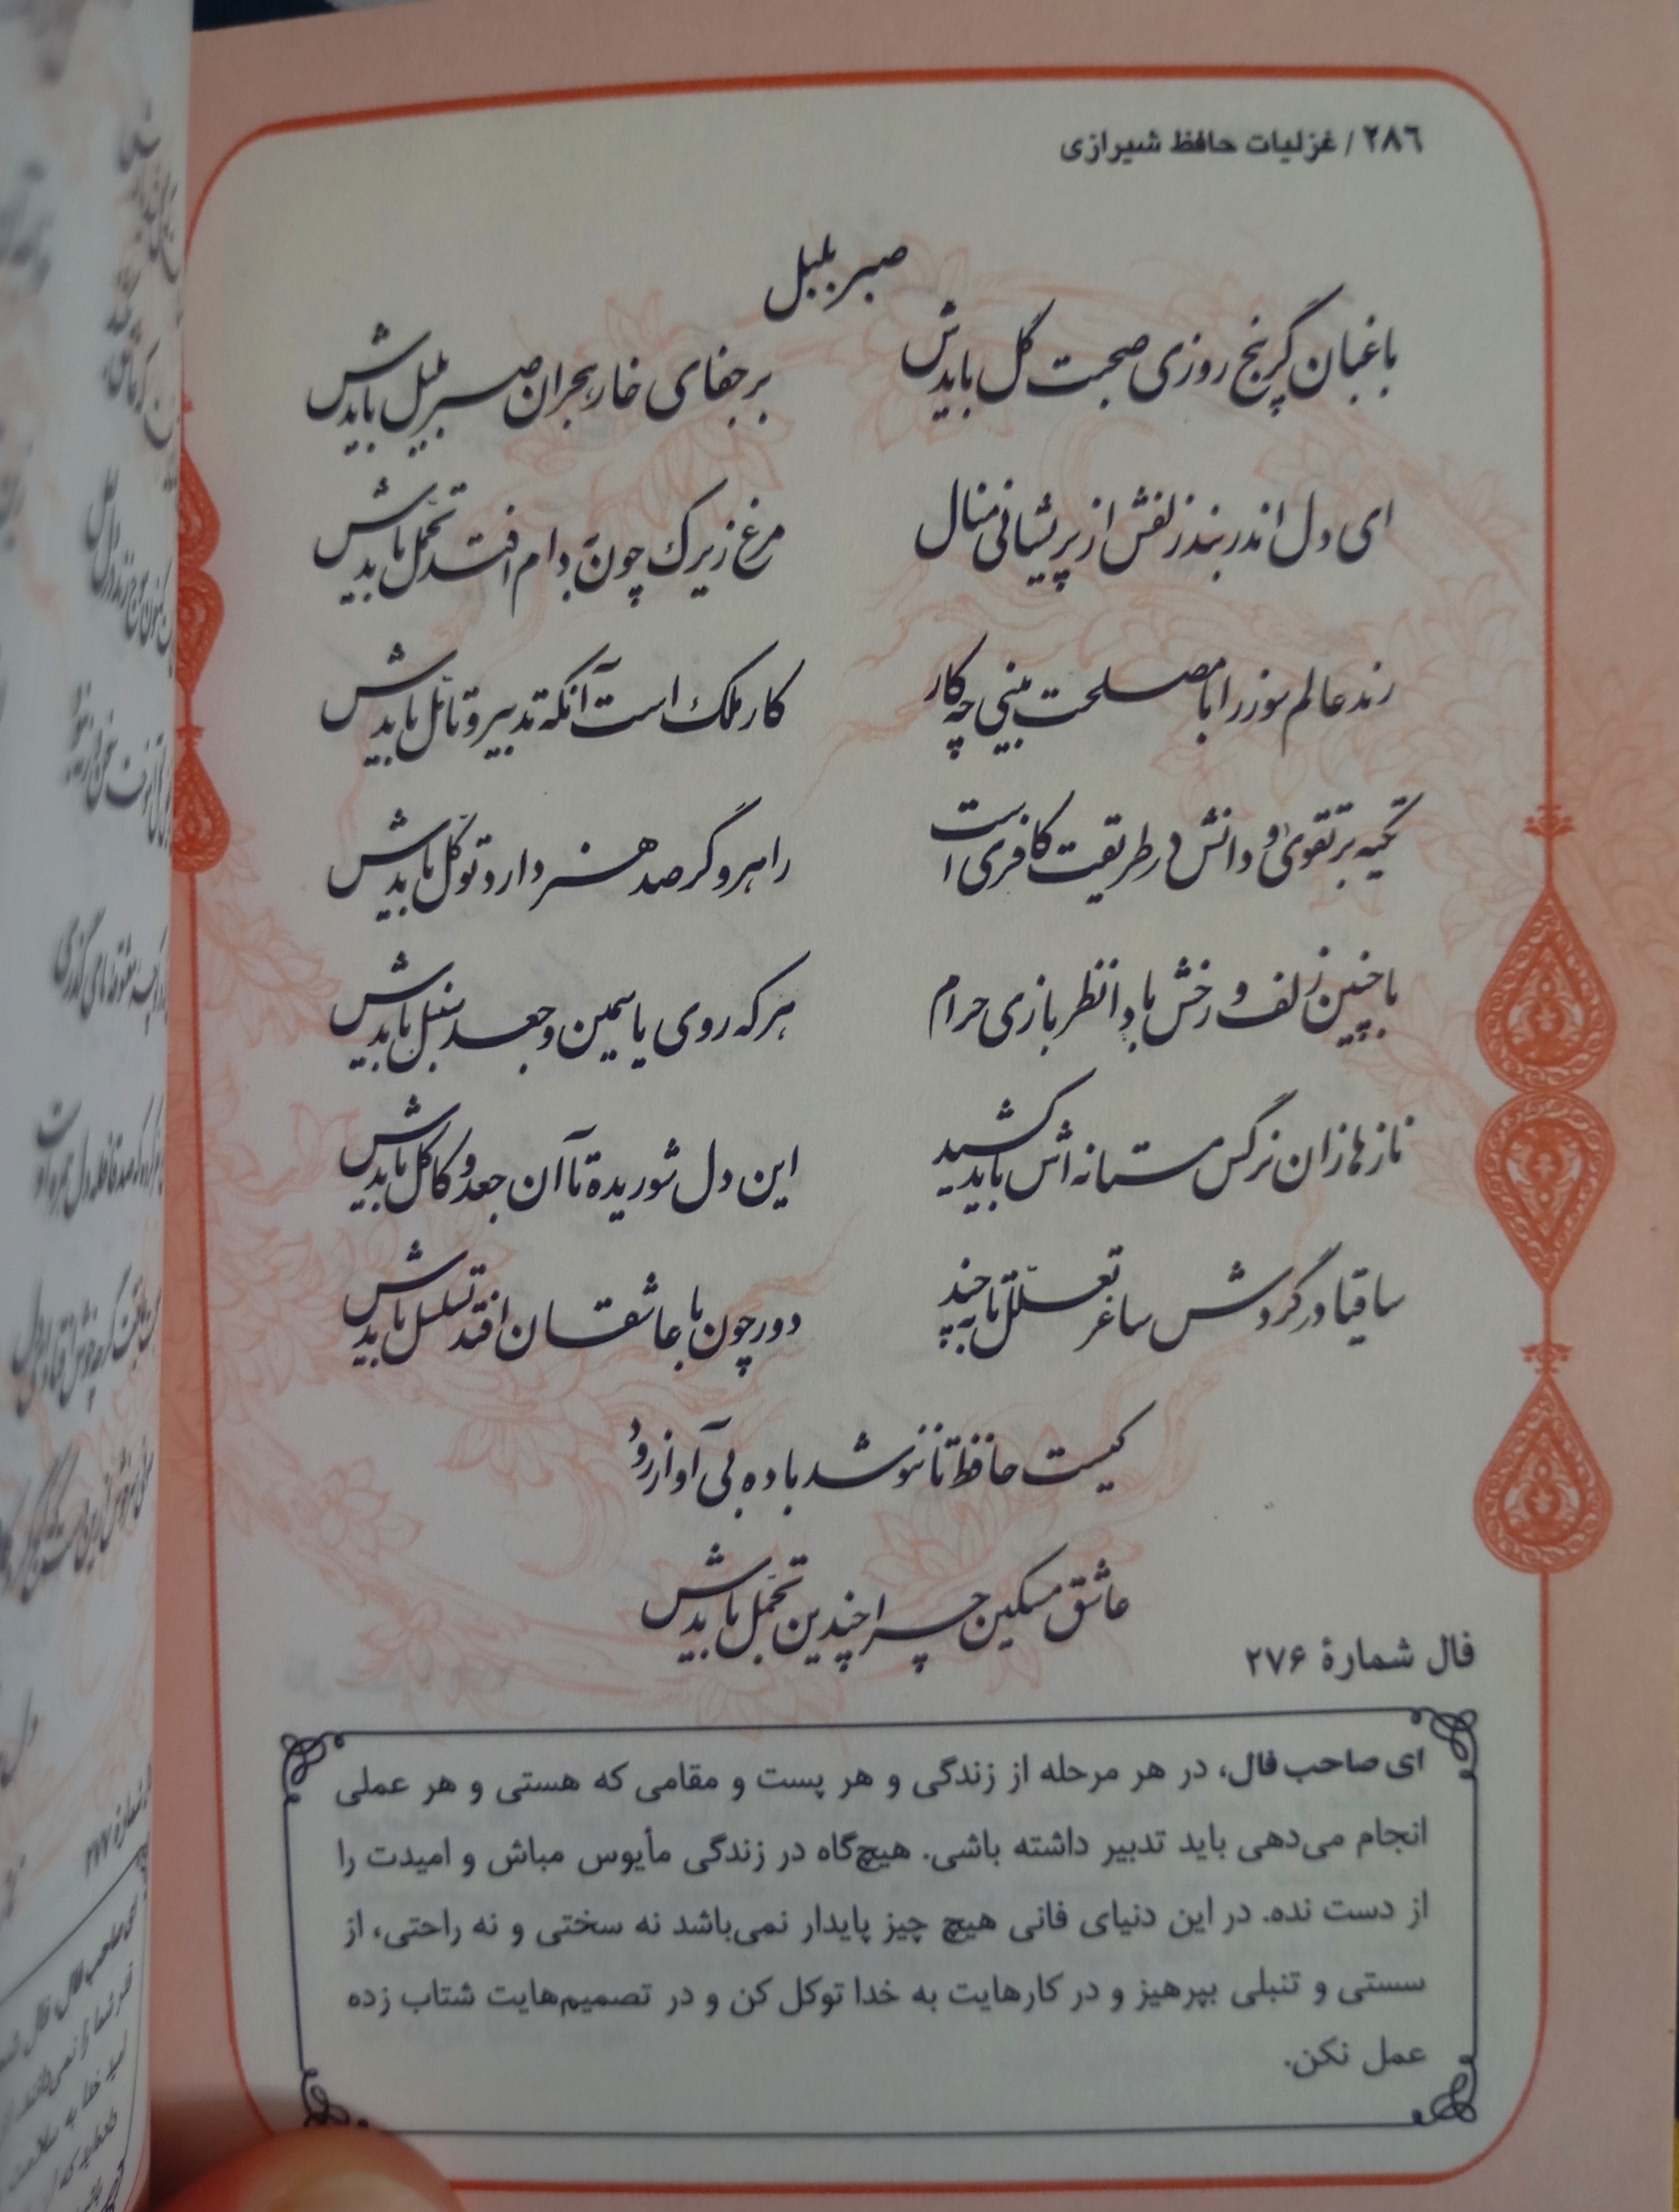 ۲۸۶ / غزلیات حافظ شیرازی
صبر بلبل
باغبان گر پنج روزی صحبت گل بایدش
بر جفای خار هجران صبر بلبل بایدش
ای دل اندر بند زلفش از پریشانی منال
مرغ زیرک چون به دام افتد تحمّل بایدش
رند عالم سوز را با مصلحت بینی چه کار
کار ملک است آنکه تدبیر و تأمّل بایدش
تکیه بر تقویٰ و دانش در طریقت کافری است
راهرو گر صد هنر دارد توکّل بایدش
با چنین زلف و رخش بادا نظر بازی حرام
هر که روی یاسمین و جعد سنبل بایدش
نازها زان نرگس مستانه اش باید کشید
این دل شوریده تا آن جعد و کاکل بایدش
ساقیا در گردش ساغر تعلّل تا به چند
دور چون با عاشقان افتد تسلسل بایدش
کیست حافظ تا ننوشد باده بی آواز رود
عاشق مسکین چرا چندین تحمّل بایدش
فال شمارهٔ ۲۷۶
ای صاحب فال، در هر مرحله از زندگی و هر پست و مقامی که هستی و هر عملی
انجام می‌دهی باید تدبیر داشته باشی. هیچ‌گاه در زندگی مأیوس مباش و امیدت را
از دست نده. در این دنیای فانی هیچ چیز پایدار نمی‌باشد نه سختی و نه راحتی، از
سستی و تنبلی بپرهیز و در کارهایت به خدا توکل کن و در تصمیم‌هایت شتاب زده
عمل نکن.